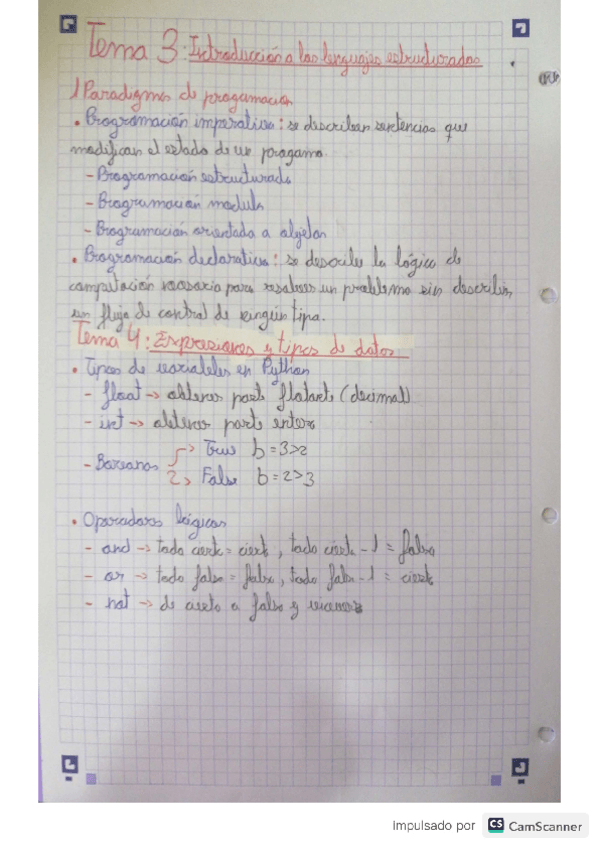 Tema 3: Introducción a los lenguajes estructurados
1 Paradigmas de progamacion
• Programación imperativa: se describen sentencias que
modifican el estado de un progama.
- Programación estructurada
- Programación modula
- Programación orientada a objetos
• Programación declarativa: se describe la lógica de
computación necesaria para resolver un problema sin describir,
un flujo de control de ningún tipo.
Tema 4: Expresiones y tipos de datos
• Tipos de variables en Python
- float → obtener parte flotante (decimal)
- int → obtener parte entera
- Booleanos → True b = 3>2
→ False b = 2>3
• Operadores lógicos
- and → todo cierto = cierto, todo cierto - 1 = falso
- or → todo falso = falso, todo falso - 1 = cierto
- not → de cierto a falso y viceversa
Impulsado por CS CamScanner